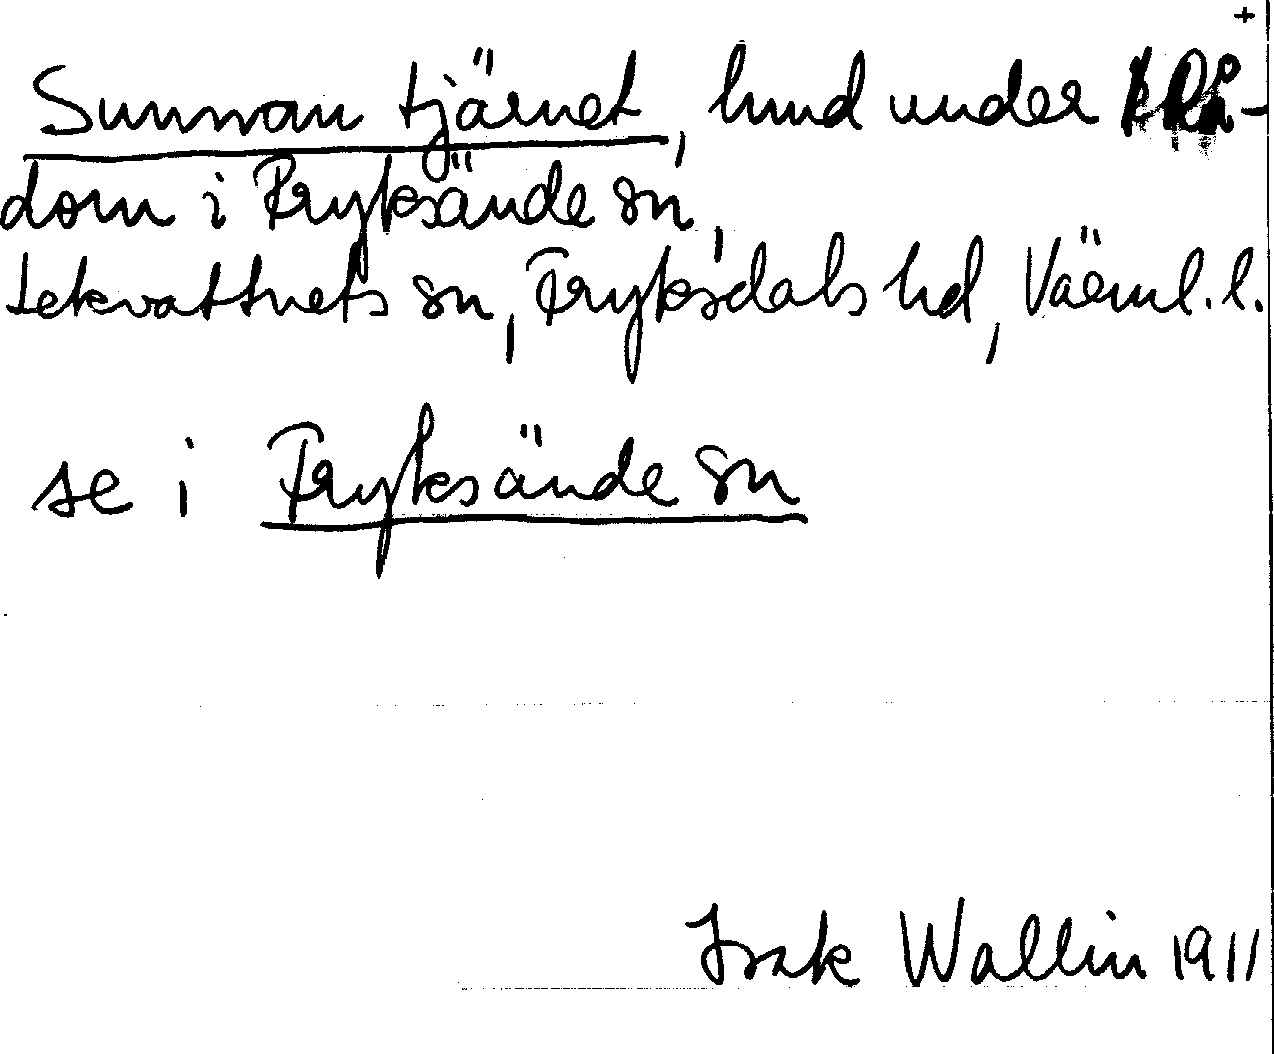 +
Sunnan tjärnet, hmd under Rå-
dom i Fryksände sn,
Lekvattnets sn, Fryksdals hd, Värml. l.
se i Fryksände sn
Isak Wallin 1911